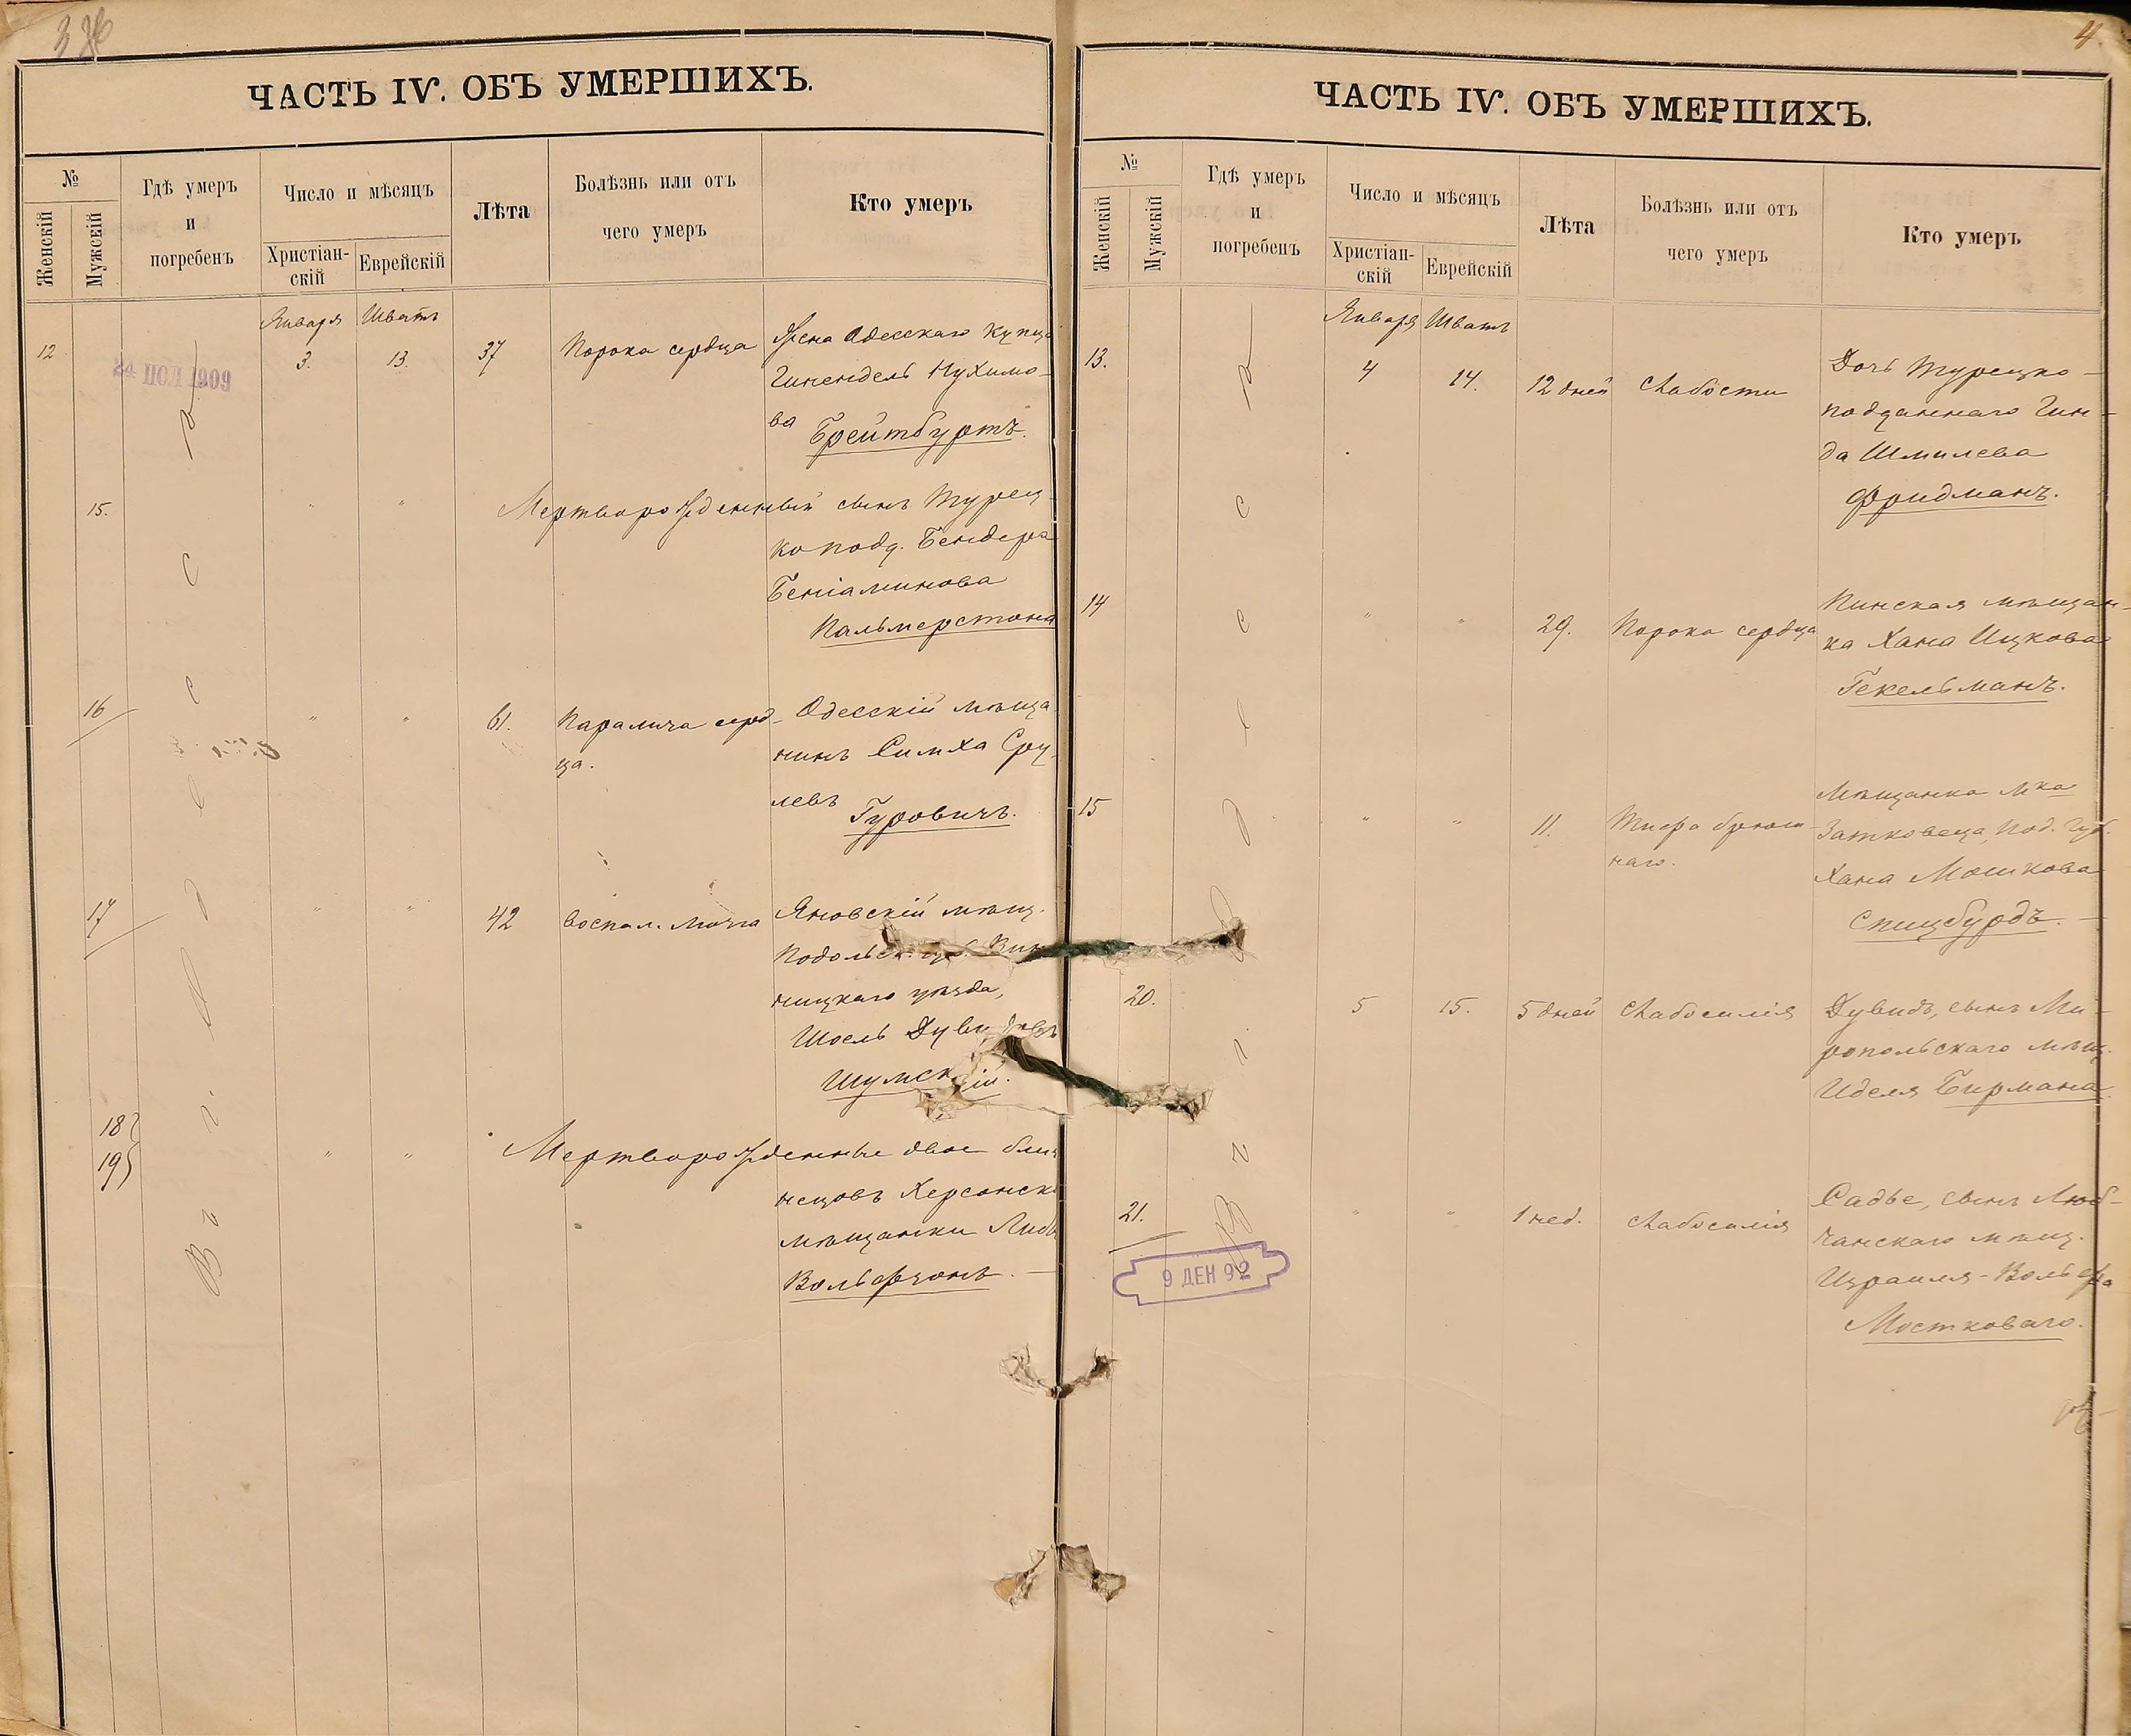 4.
ЧАСТЬ IV. ОБЪ УМЕРШИХЪ.
№
Женскій
Мужскій
Гдѣ умеръ
и
погребенъ
Число и мѣсяцъ
Христіан-
скій
Еврейскій
Лѣта
Болѣзнь или отъ
чего умеръ
Кто умеръ
Января Шватъ
12 3. 13. 37 Порока сердца Жена Одесскаго купца
Гинендель Нухимо-
ва Брейтбуртъ.
15. " " Мертворожденный сынъ Турец-
ко под. Бендера
Беніаминова
Пальмерстона
16 " " 61. Паралича серд- Одесскій мѣща
ца. нинъ Симха Сру-
левъ
Гуровичъ.
17 " " 42 Воспал. мозга Яновскій мѣщ.
Подольск. губ. Вин
ницкаго уѣзда,
Шоель Дувидовъ
Шумскій.
18
19 " " Мертворожденные двое близ
нецовъ Херсонск
мѣщанки Либы
Вольфзонъ.
24 ИЮЛ 1909
Одессѣ
ЧАСТЬ IV. ОБЪ УМЕРШИХЪ.
№
Женскій
Мужскій
Гдѣ умеръ
и
погребенъ
Число и мѣсяцъ
Христіан-
скій
Еврейскій
Лѣта
Болѣзнь или отъ
чего умеръ
Кто умеръ
Января Шватъ
13. 4 14. 12 дней Слабости Дочь Турецко-
подданнаго Гин-
да Шмилева
Фридманъ.
14 " " 29. Порока сердца Пинская мѣщан-
ка Хана Ицкова
Гекельманъ.
15 " " 11. Тифа брюш- Мѣщанка мка
наго. Затковеца, Под. губ.
Хана Мошкова
Спицбурдъ.
20. 5 15. 5 дней Слабосилія Дувидъ, сынъ Ми-
ропольскаго мѣщ.
Иделя Бирмана
21. " " 1 нед. Слабосилія Садье, сынъ Люб-
чанскаго мѣщ.
Израиля-Вольфа
Мостковаго.
9 ДЕК 92